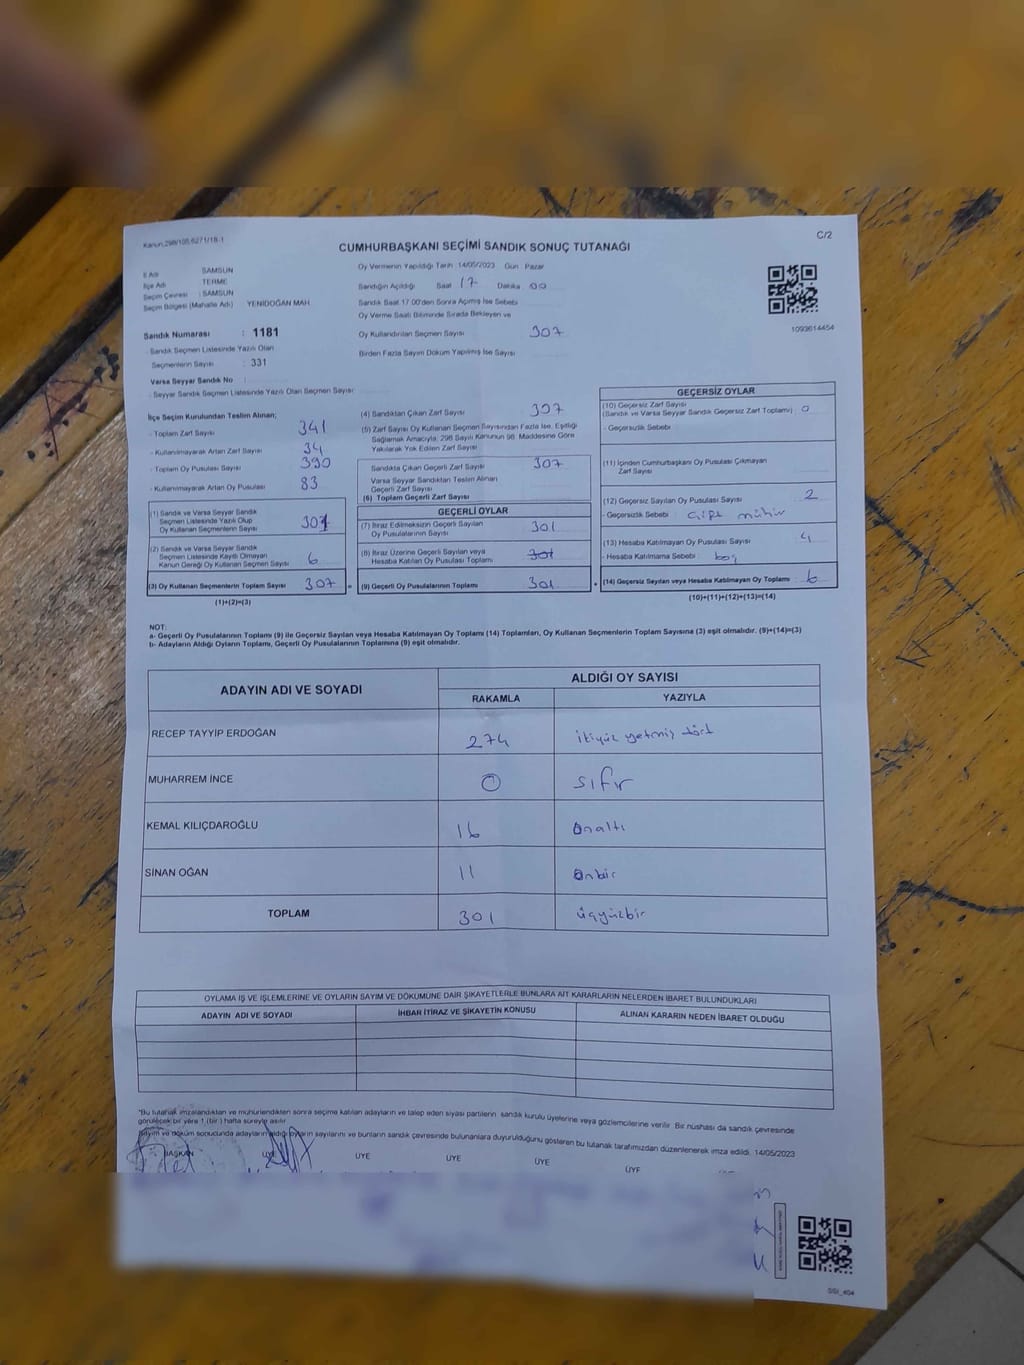 Kanun,298/105,6271/18-1
C/2
CUMHURBAŞKANI SEÇİMİ SANDIK SONUÇ TUTANAĞI
İl Adı SAMSUN
İlçe Adı TERME
Seçim Çevresi : SAMSUN
Seçim Bölgesi (Mahalle Adı) YENİDOĞAN MAH
Sandık Numarası : 1181
- Sandık Seçmen Listesinde Yazılı Olan
Seçmenlerin Sayısı : 331
Varsa Seyyar Sandık No :
- Seyyar Sandık Seçmen Listesinde Yazılı Olan Seçmen Sayısı
Oy Vermenin Yapıldığı Tarih :14/05/2023 Gün : Pazar
Sandığın Açıldığı Saat 17 Dakika 00
Sandık Saat 17:00'den Sonra Açılmış İse Sebebi
Oy Verme Saati Bitiminde Sırada Bekleyen ve
Oy Kullandırılan Seçmen Sayısı 307
Birden Fazla Sayım Döküm Yapılmış İse Sayısı
1093614454
İlçe Seçim Kurulundan Teslim Alınan;
- Toplam Zarf Sayısı 341
- Kullanılmayarak Artan Zarf Sayısı 34
- Toplam Oy Pusulası Sayısı 390
- Kullanılmayarak Artan Oy Pusulası 83
(1) Sandık ve Varsa Seyyar Sandık
Seçmen Listesinde Yazılı Olup
Oy Kullanan Seçmenlerin Sayısı 301
(2) Sandık ve Varsa Seyyar Sandık
Seçmen Listesinde Kayıtlı Olmayan
Kanun Gereği Oy Kullanan Seçmen Sayısı 6
(3) Oy Kullanan Seçmenlerin Toplam Sayısı 307
(1)+(2)=(3)
(4) Sandıktan Çıkan Zarf Sayısı 307
(5) Zarf Sayısı Oy Kullanan Seçmen Sayısından Fazla İse, Eşitliği
Sağlamak Amacıyla; 298 Sayılı Kanunun 98. Maddesine Göre
Yakılarak Yok Edilen Zarf Sayısı
Sandıkta Çıkan Geçerli Zarf Sayısı 307
Varsa Seyyar Sandıktan Teslim Alınan
Geçerli Zarf Sayısı
(6) Toplam Geçerli Zarf Sayısı
GEÇERLİ OYLAR
(7) İtiraz Edilmeksizin Geçerli Sayılan
Oy Pusulalarının Sayısı 301
(8) İtiraz Üzerine Geçerli Sayılan veya
Hesaba Katılan Oy Pusulası Toplamı 301
(9) Geçerli Oy Pusulalarının Toplamı 301
GEÇERSİZ OYLAR
(10) Geçersiz Zarf Sayısı
(Sandık ve Varsa Seyyar Sandık Geçersiz Zarf Toplamı) 0
- Geçersizlik Sebebi
(11) İçinden Cumhurbaşkanı Oy Pusulası Çıkmayan
Zarf Sayısı
(12) Geçersiz Sayılan Oy Pusulası Sayısı 2
- Geçersizlik Sebebi : çift mühür
(13) Hesaba Katılmayan Oy Pusulası Sayısı 4
- Hesaba Katılmama Sebebi boş
(14) Geçersiz Sayılan veya Hesaba Katılmayan Oy Toplamı 6
(10)+(11)+(12)+(13)=(14)
NOT:
a- Geçerli Oy Pusulalarının Toplamı (9) ile Geçersiz Sayılan veya Hesaba Katılmayan Oy Toplamı (14) Toplamları, Oy Kullanan Seçmenlerin Toplam Sayısına (3) eşit olmalıdır. (9)+(14)=(3)
b- Adayların Aldığı Oyların Toplamı, Geçerli Oy Pusulalarının Toplamına (9) eşit olmalıdır.
ADAYIN ADI VE SOYADI ALDIĞI OY SAYISI
RAKAMLA YAZIYLA
RECEP TAYYİP ERDOĞAN 274 ikiyüz yetmiş dört
MUHARREM İNCE 0 sıfır
KEMAL KILIÇDAROĞLU 16 onaltı
SİNAN OĞAN 11 onbir
TOPLAM 301 üçyüzbir
OYLAMA İŞ VE İŞLEMLERİNE VE OYLARIN SAYIM VE DÖKÜMÜNE DAİR ŞİKAYETLERLE BUNLARA AİT KARARLARIN NELERDEN İBARET BULUNDUKLARI
ADAYIN ADI VE SOYADI İHBAR İTİRAZ VE ŞİKAYETİN KONUSU ALINAN KARARIN NEDEN İBARET OLDUĞU
*Bu tutanak imzalandıktan ve mühürlendikten sonra seçime katılan adayların ve talep eden siyasi partilerin sandık kurulu üyelerine veya gözlemcilerine verilir. Bir nüshası da sandık çevresinde
görülecek bir yere 1 (bir ) hafta süreyle asılır
Sayım ve döküm sonucunda adayların aldığı oyların sayılarını ve bunların sandık çevresinde bulunanlara duyurulduğunu gösteren bu tutanak tarafımızdan düzenlenerek imza edildi. 14/05/2023
BAŞKAN ÜYE ÜYE ÜYE ÜYE ÜYE
SSI_404